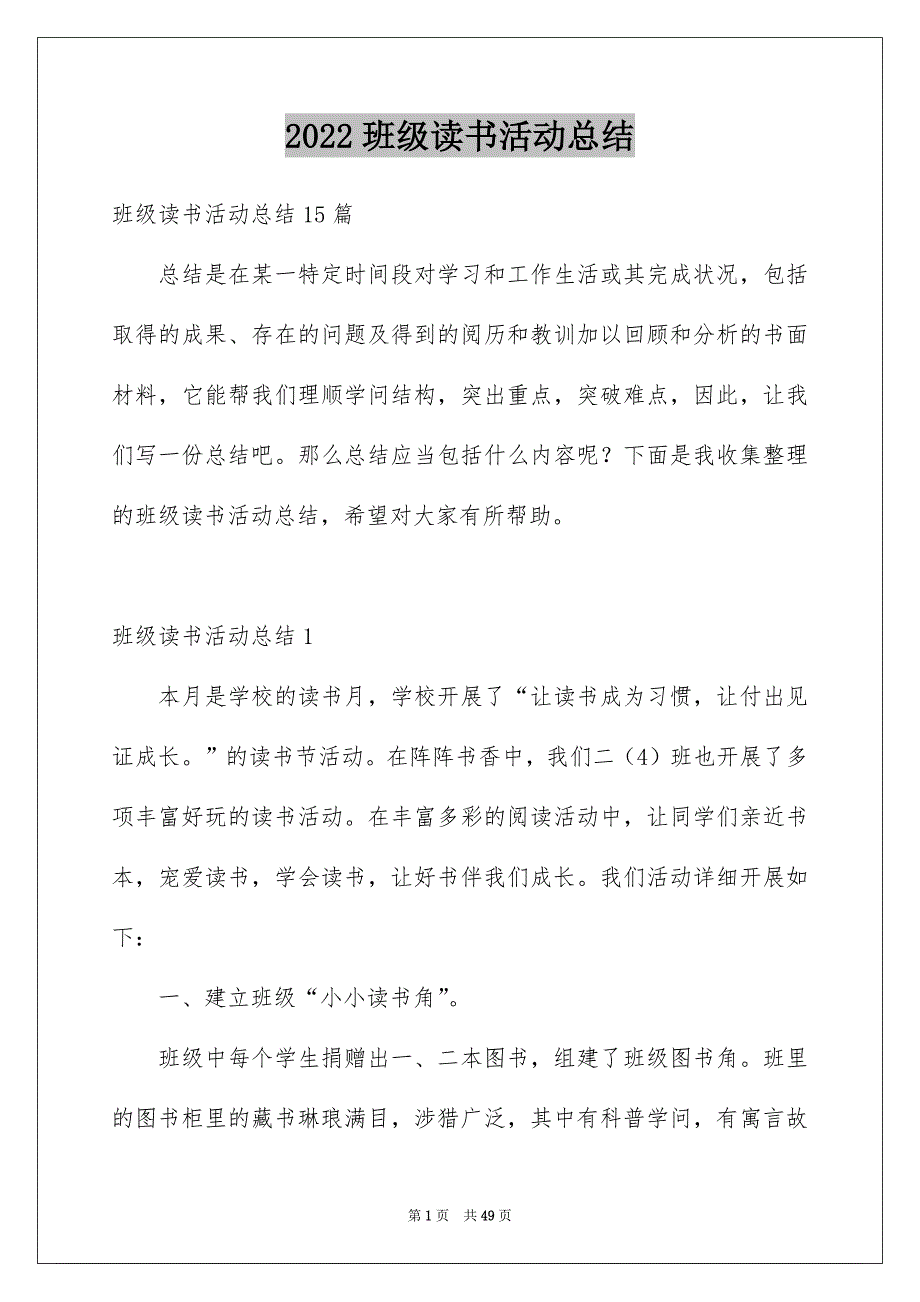 2022班级读书活动总结
班级读书活动总结15篇
总结是在某一特定时间段对学习和工作生活或其完成状况，包括
取得的成果、存在的问题及得到的阅历和教训加以回顾和分析的书面
材料，它能帮我们理顺学问结构，突出重点，突破难点，因此，让我
们写一份总结吧。那么总结应当包括什么内容呢？下面是我收集整理
的班级读书活动总结，希望对大家有所帮助。
班级读书活动总结1
本月是学校的读书月，学校开展了“让读书成为习惯，让付出见
证成长。”的读书节活动。在阵阵书香中，我们二（4）班也开展了多
项丰富好玩的读书活动。在丰富多彩的阅读活动中，让同学们亲近书
本，宠爱读书，学会读书，让好书伴我们成长。我们活动详细开展如
下：
一、建立班级“小小读书角”。
班级中每个学生捐赠出一、二本图书，组建了班级图书角。班里
的图书柜里的藏书琳琅满目，涉猎广泛，其中有科普学问，有寓言故
第1页 共49页